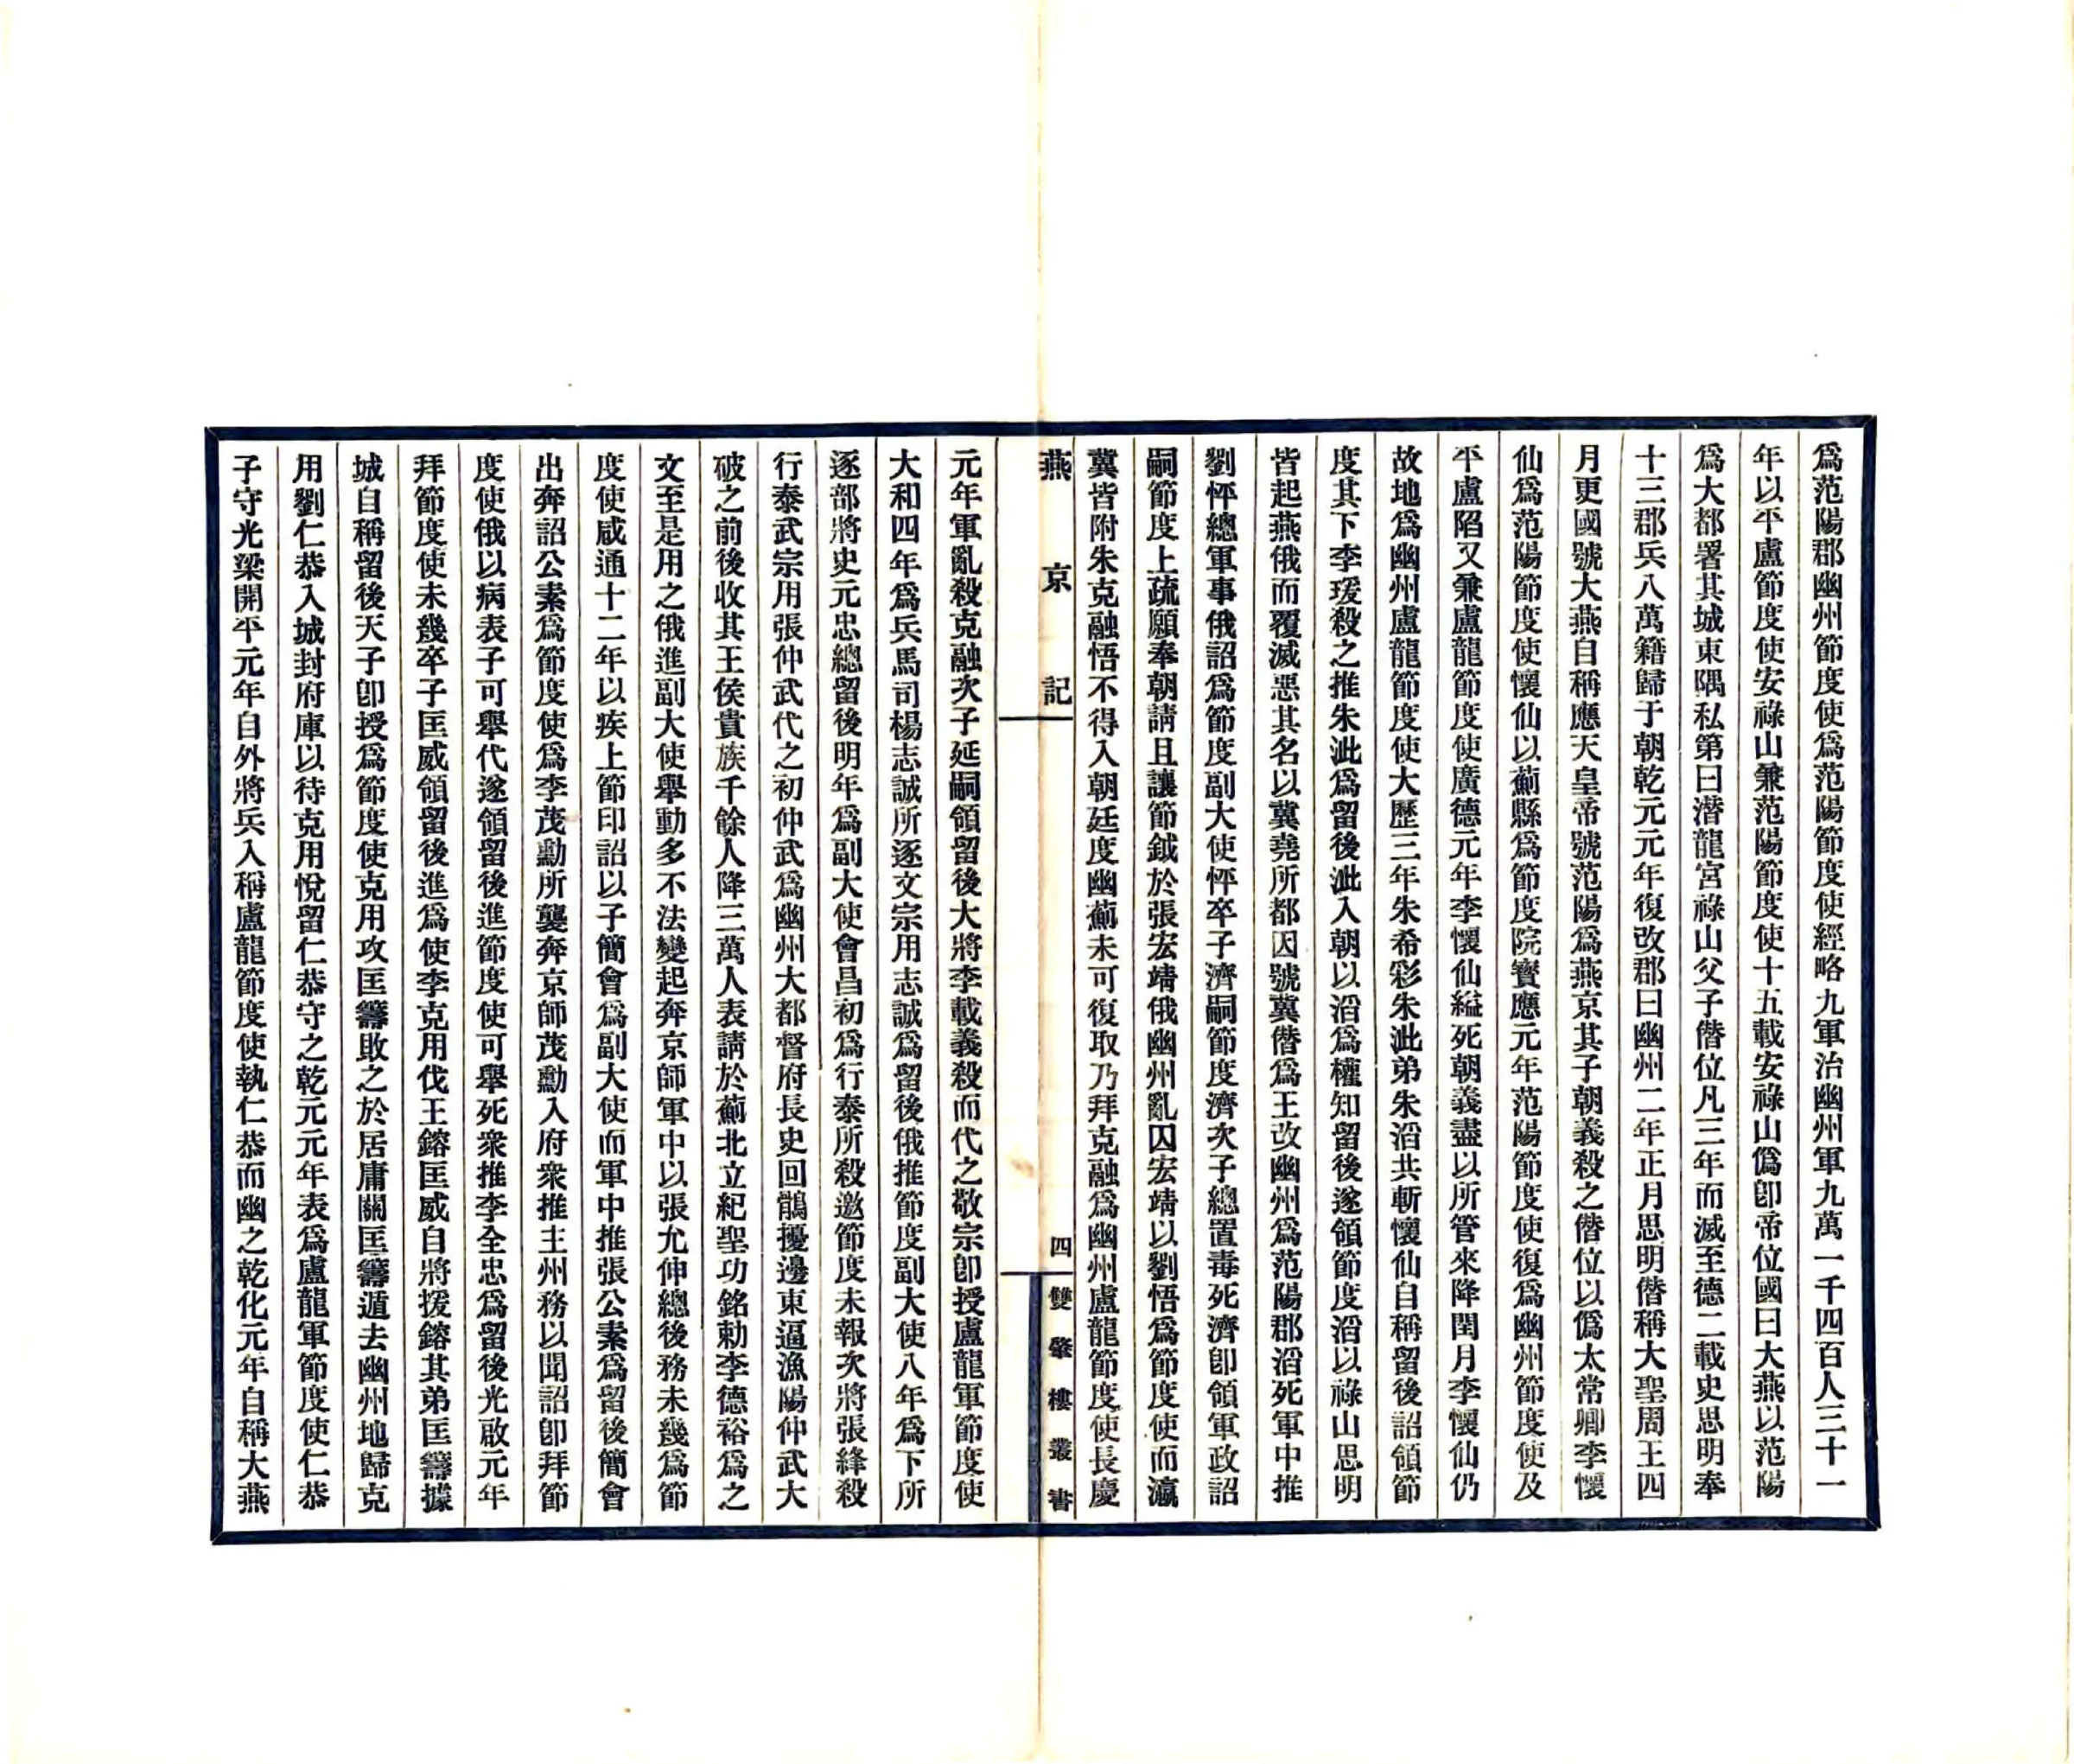 爲范陽郡幽州節度使爲范陽節度使經略九軍治幽州軍九萬一千四百人三十一
年以平盧節度使安祿山兼范陽節度使十五載安祿山僞卽帝位國曰大燕以范陽
爲大都署其城東隅私第曰潛龍宮祿山父子僭位凡三年而滅至德二載史思明奉
十三郡兵八萬籍歸于朝乾元元年復改郡曰幽州二年正月思明僭稱大聖周王四
月更國號大燕自稱應天皇帝號范陽爲燕京其子朝義殺之僭位以僞太常卿李懷
仙爲范陽節度使懷仙以薊縣爲節度院寶應元年范陽節度使復爲幽州節度使及
平盧陷又兼盧龍節度使廣德元年李懷仙縊死朝義盡以所管來降閏月李懷仙仍
故地爲幽州盧龍節度使大歷三年朱希彩朱泚弟朱滔共斬懷仙自稱留後詔領節
度其下李瑗殺之推朱泚爲留後泚入朝以滔爲權知留後遂領節度滔以祿山思明
皆起燕俄而覆滅惡其名以冀堯所都因號冀僭爲王改幽州爲范陽郡滔死軍中推
劉怦總軍事俄詔爲節度副大使怦卒子濟嗣節度濟次子總置毒死濟卽領軍政詔
嗣節度上疏願奉朝請且讓節鉞於張宏靖俄幽州亂囚宏靖以劉悟爲節度使而瀛
冀皆附朱克融悟不得入朝廷度幽薊未可復取乃拜克融爲幽州盧龍節度使長慶
燕京記
四
雙肇樓叢書
元年軍亂殺克融次子延嗣領留後大將李載義殺而代之敬宗卽授盧龍軍節度使
大和四年爲兵馬司楊志誠所逐文宗用志誠爲留後俄推節度副大使八年爲下所
逐部將史元忠總留後明年爲副大使會昌初爲行泰所殺邀節度未報次將張絳殺
行泰武宗用張仲武代之初仲武爲幽州大都督府長史回鶻擾邊東逼漁陽仲武大
破之前後收其王侯貴族千餘人降三萬人表請於薊北立紀聖功銘勅李德裕爲之
文至是用之俄進副大使舉動多不法變起奔京師軍中以張允伸總後務未幾爲節
度使咸通十二年以疾上節印詔以子簡會爲副大使而軍中推張公素爲留後簡會
出奔詔公素爲節度使爲李茂勳所襲奔京師茂勳入府衆推主州務以聞詔卽拜節
度使俄以病表子可舉代遂領留後進節度使可舉死衆推李全忠爲留後光啟元年
拜節度使未幾卒子匡威領留後進爲使李克用伐王鎔匡威自將援鎔其弟匡籌據
城自稱留後天子卽授爲節度使克用攻匡籌敗之於居庸關匡籌遁去幽州地歸克
用劉仁恭入城封府庫以待克用悅留仁恭守之乾元元年表爲盧龍軍節度使仁恭
子守光梁開平元年自外將兵入稱盧龍節度使執仁恭而幽之乾化元年自稱大燕